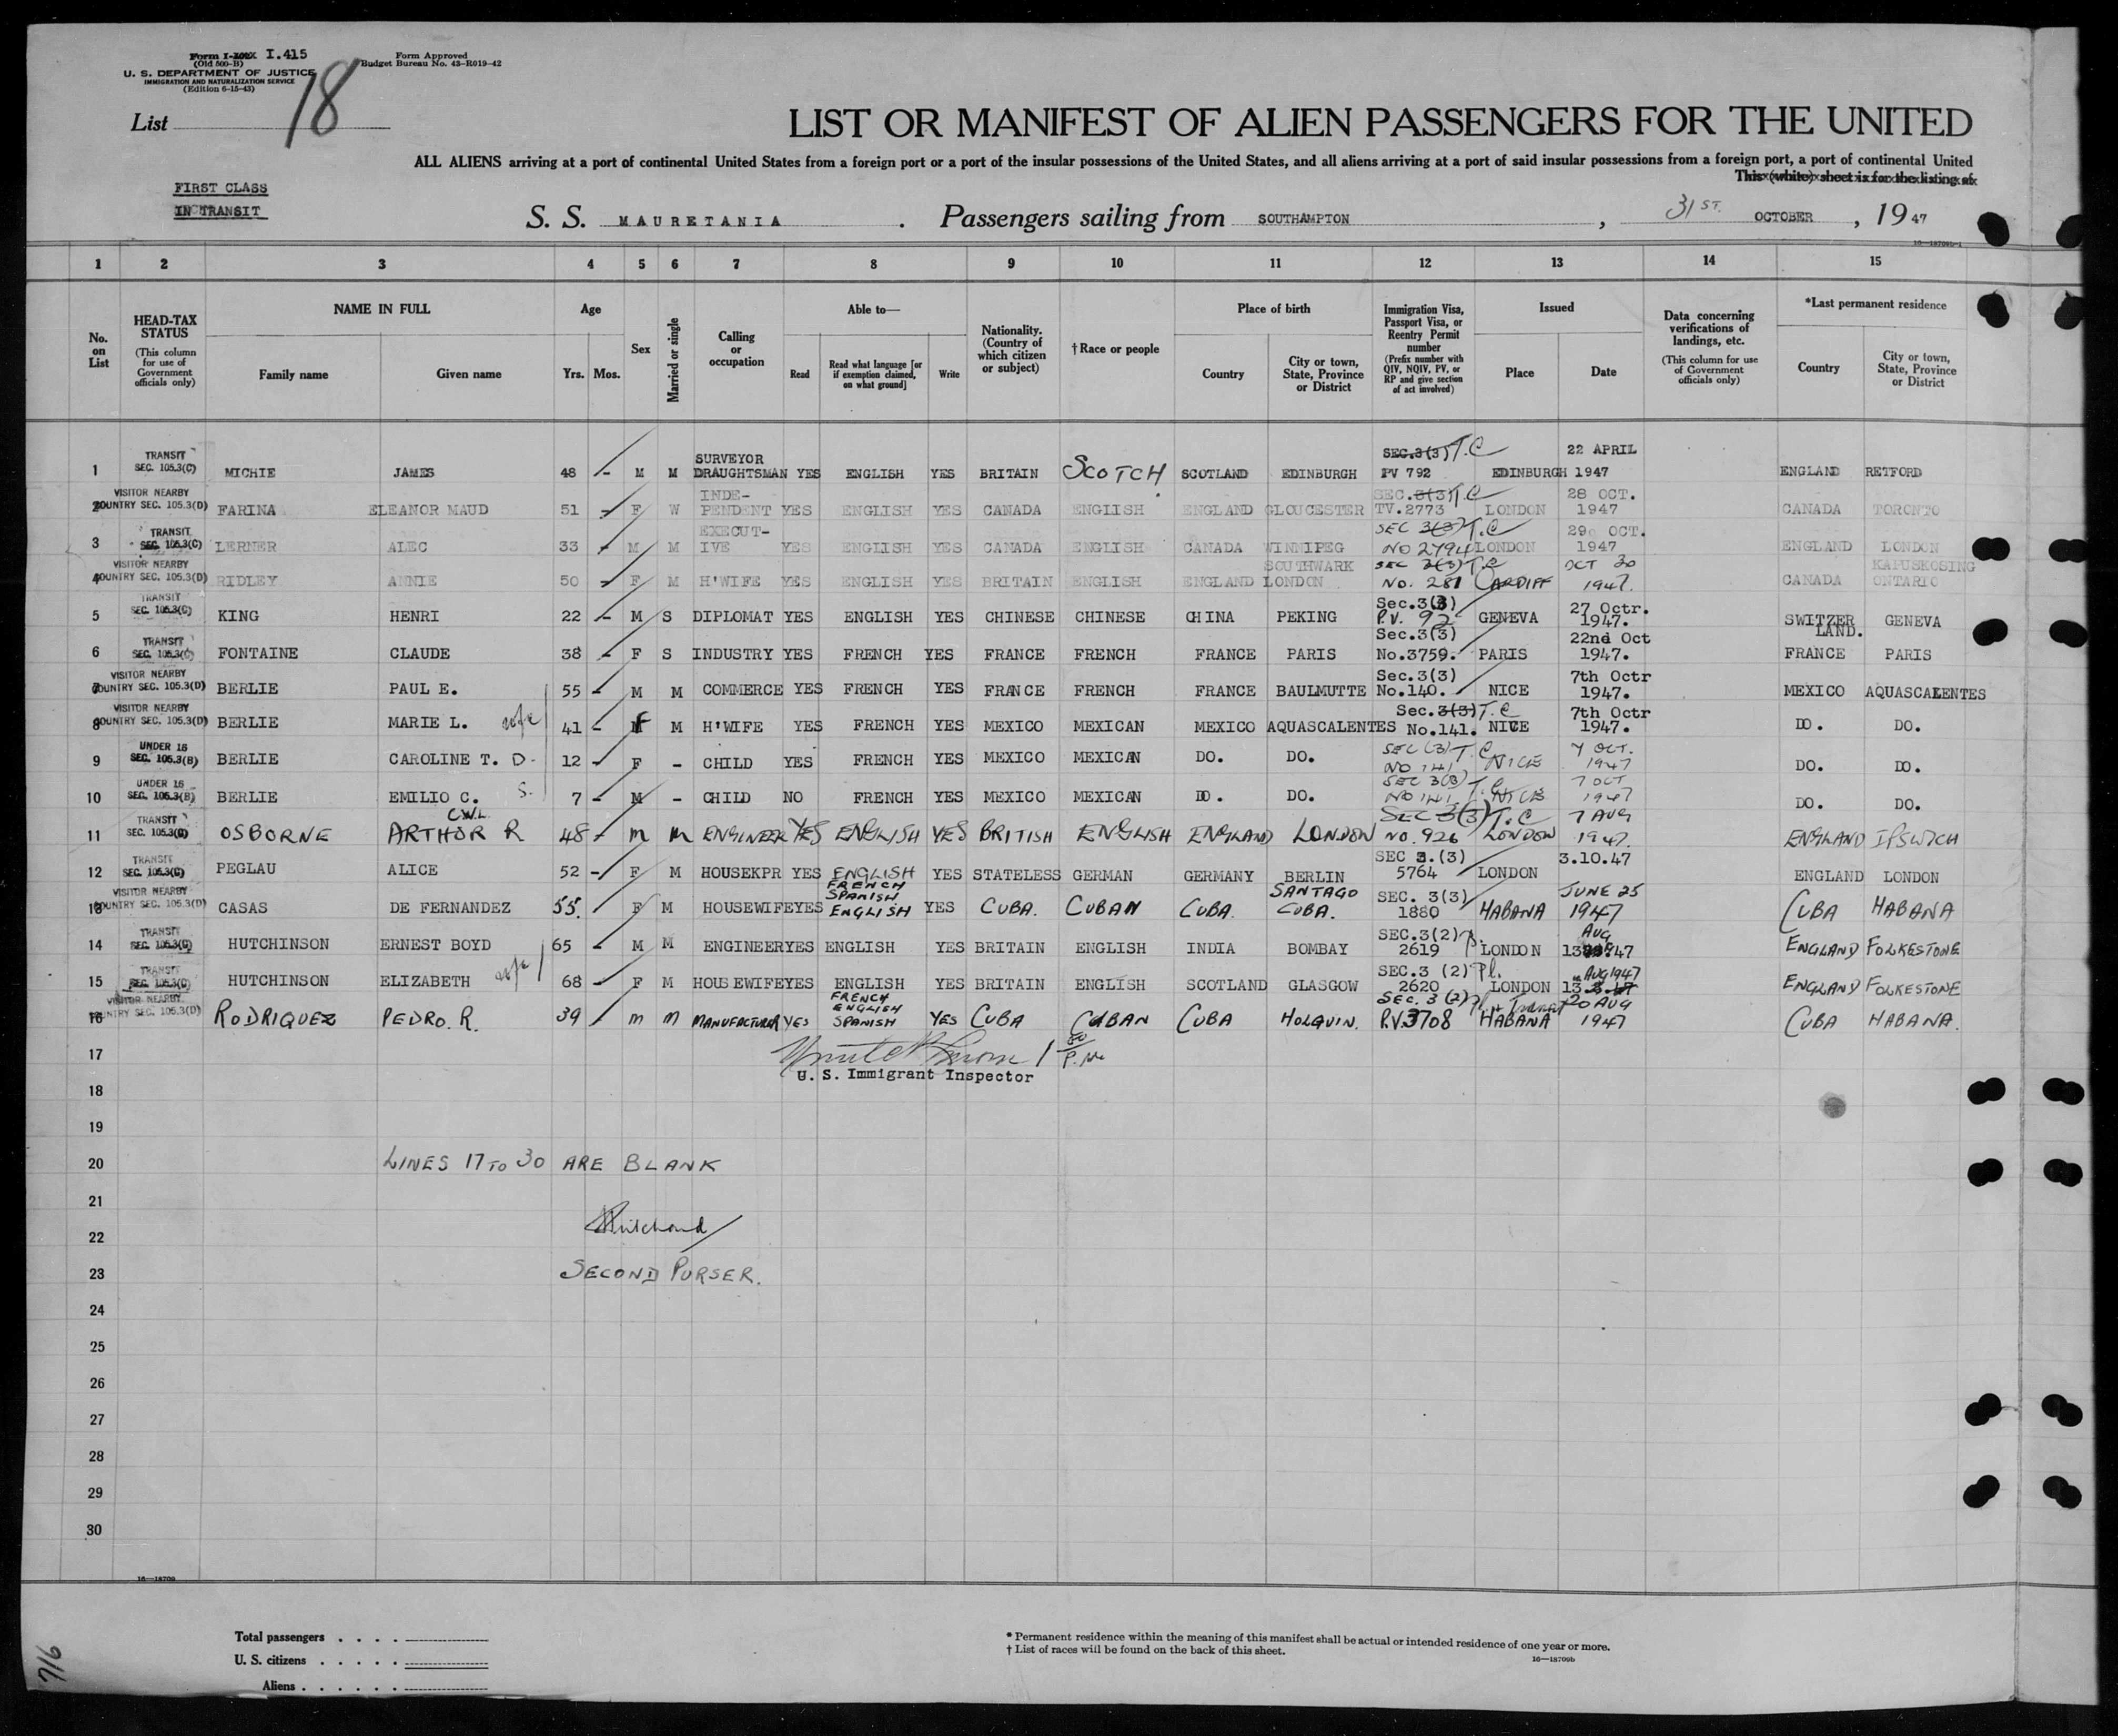 Form I-402X I.415
(Old 500-B)
U. S. DEPARTMENT OF JUSTICE
IMMIGRATION AND NATURALIZATION SERVICE
(Edition 6-15-43)
Form Approved
Budget Bureau No. 43-R019-42
List 18
LIST OR MANIFEST OF ALIEN PASSENGERS FOR THE UNITED
ALL ALIENS arriving at a port of continental United States from a foreign port or a port of the insular possessions of the United States, and all aliens arriving at a port of said insular possessions from a foreign port, a port of continental United
This (white) sheet is for the listing of
FIRST CLASS
IN TRANSIT
S. S. MAURETANIA . Passengers sailing from SOUTHAMPTON , 31ST. OCTOBER , 1947
16—18709b-1
1 2 3 4 5 6 7 8 9 10 11 12 13 14 15
No. on List
HEAD-TAX STATUS
(This column for use of Government officials only)
NAME IN FULL
Family name Given name
Age
Yrs. Mos.
Sex
Married or single
Calling or occupation
Able to—
Read Read what language [or if exemption claimed, on what ground] Write
Nationality. (Country of which citizen or subject)
†Race or people
Place of birth
Country City or town, State, Province or District
Immigration Visa, Passport Visa, or Reentry Permit number
(Prefix number with QIV, NQIV, PV, or RP and give section of act involved)
Issued
Place Date
Data concerning verifications of landings, etc.
(This column for use of Government officials only)
*Last permanent residence
Country City or town, State, Province or District
TRANSIT SURVEYOR SEC.3(3) T.C 22 APRIL
1 SEC. 105.3(C) MICHIE JAMES 48 - M M DRAUGHTSMAN YES ENGLISH YES BRITAIN SCOTCH SCOTLAND EDINBURGH PV 792 EDINBURGH 1947 ENGLAND RETFORD
VISITOR NEARBY INDE- SEC.3(3) T.C 28 OCT.
2 COUNTRY SEC. 105.3(D) FARINA ELEANOR MAUD 51 - F W PENDENT YES ENGLISH YES CANADA ENGLISH ENGLAND GLOUCESTER TV.2773 LONDON 1947 CANADA TORONTO
TRANSIT EXECUT- SEC 3(3) T.C 29 OCT.
3 SEC. 105.3(C) LERNER ALEC 33 - M M IVE YES ENGLISH YES CANADA ENGLISH CANADA WINNIPEG NO 2794 LONDON 1947 ENGLAND LONDON
VISITOR NEARBY SOUTHWARK SEC 3(3) T.C OCT 30 KAPUSKOSING
4 COUNTRY SEC. 105.3(D) RIDLEY ANNIE 50 - F M H'WIFE YES ENGLISH YES BRITAIN ENGLISH ENGLAND LONDON NO. 281 CARDIFF 1947. CANADA ONTARIO
TRANSIT Sec.3(3) 27 Octr.
5 SEC. 105.3(C) KING HENRI 22 - M S DIPLOMAT YES ENGLISH YES CHINESE CHINESE CHINA PEKING P.V. 92 GENEVA 1947. SWITZER LAND. GENEVA
TRANSIT Sec.3(3) 22nd Oct
6 SEC. 105.3(C) FONTAINE CLAUDE 38 - F S INDUSTRY YES FRENCH YES FRANCE FRENCH FRANCE PARIS No.3759. PARIS 1947. FRANCE PARIS
VISITOR NEARBY Sec.3(3) 7th Octr
7 COUNTRY SEC. 105.3(D) BERLIE PAUL E. 55 - M M COMMERCE YES FRENCH YES FRANCE FRENCH FRANCE BAULMUTTE No.140. NICE 1947. MEXICO AQUASCALENTES
VISITOR NEARBY Sec.3(3) T.C 7th Octr
8 COUNTRY SEC. 105.3(D) BERLIE MARIE L. wife 41 - F M H'WIFE YES FRENCH YES MEXICO MEXICAN MEXICO AQUASCALENTES No.141. NICE 1947. DO. DO.
UNDER 16 SEC (3) T.C. 7 OCT.
9 SEC. 105.3(B) BERLIE CAROLINE T. D. 12 - F - CHILD YES FRENCH YES MEXICO MEXICAN DO. DO. NO 141 NICE 1947 DO. DO.
UNDER 16 SEC 3(3) T.C 7 OCT
10 SEC. 105.3(B) BERLIE EMILIO C. S. 7 - M - CHILD NO FRENCH YES MEXICO MEXICAN DO. DO. NO 141 NICE 1947 DO. DO.
TRANSIT C.W.L. SEC 3(3) T.C 7 AUG
11 SEC. 105.3(C) OSBORNE ARTHOR R 48 - M M ENGINEER YES ENGLISH YES BRITISH ENGLISH ENGLAND LONDON NO. 926 LONDON 1947. ENGLAND IPSWICH
TRANSIT SEC 3.(3) 3.10.47
12 SEC. 105.3(C) PEGLAU ALICE 52 - F M HOUSEKPR YES ENGLISH YES STATELESS GERMAN GERMANY BERLIN 5764 LONDON ENGLAND LONDON
VISITOR NEARBY FRENCH SPANISH SANTAGO SEC. 3(3) JUNE 25
13 COUNTRY SEC. 105.3(D) CASAS DE FERNANDEZ 55. F M HOUSEWIFE YES ENGLISH YES CUBA. CUBAN CUBA. CUBA. 1880 HABANA 1947 CUBA HABANA
TRANSIT SEC.3(2) AUG
14 SEC. 105.3(C) HUTCHINSON ERNEST BOYD 65 - M M ENGINEER YES ENGLISH YES BRITAIN ENGLISH INDIA BOMBAY 2619 LONDON 13 47 ENGLAND FOLKESTONE
TRANSIT SEC.3 (2) Pl. AUG 1947
15 SEC. 105.3(C) HUTCHINSON ELIZABETH wife 68 - F M HOUSEWIFE YES ENGLISH YES BRITAIN ENGLISH SCOTLAND GLASGOW 2620 LONDON 13 ENGLAND FOLKESTONE
VISITOR NEARBY FRENCH ENGLISH SEC. 3 (2) Pl. in Transit 20 AUG
16 COUNTRY SEC. 105.3(D) RODRIQUEZ PEDRO. R. 39 M M MANUFACTURER YES SPANISH YES CUBA CUBAN CUBA HOLQUIN. P.V.3708 HABANA 1947 CUBA HABANA.
17
U. S. Immigrant Inspector
18
19
20 LINES 17 TO 30 ARE BLANK
21
Pritchard
22
23 SECOND PURSER.
24
25
26
27
28
29
30
16—18709
Total passengers . . . .
U. S. citizens . . . . .
Aliens . . . . . .
* Permanent residence within the meaning of this manifest shall be actual or intended residence of one year or more.
† List of races will be found on the back of this sheet.
16—18709b
916